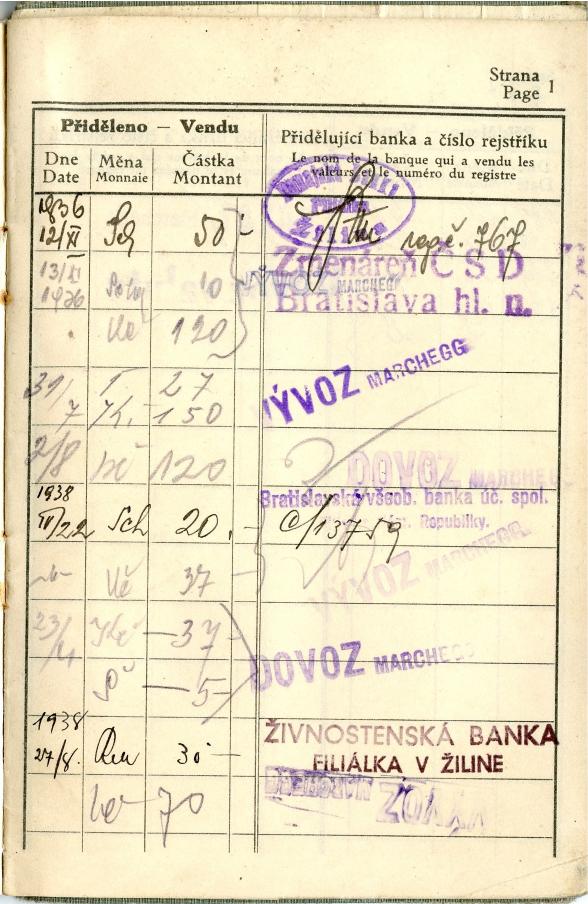 Strana
Page 1
Přiděleno — Vendu
Přidělující banka a číslo rejstříku
Le nom de la banque qui a vendu les
valeurs et le numéro du registre
Dne Date
Měna Monnaie
Částka Montant
1936
12/XI Sch 50
rejstř. 767
Žilina
Směnáreň ČSD
Bratislava hl. n.
13/XI
1936 10
VÝVOZ MARCHEGG
Kč 120
31/7 27
150
VÝVOZ MARCHEGG
2/8 Kč 120
DOVOZ MARCHEGG
Bratislavská všeob. banka úč. spol.
Republiky.
1938
IV/22 Sch 20.
c/13759
VÝVOZ MARCHEGG
Kč 37
23/4 Kč — 37
DOVOZ MARCHEGG
— 5 —
1938
27/8. 30 —
ŽIVNOSTENSKÁ BANKA
FILIÁLKA V ŽILINE
70